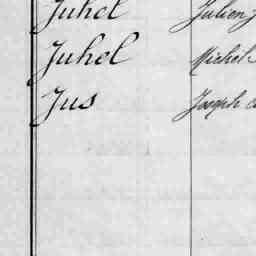 Juhel Julien J
Juhel Michel
Jus Joseph